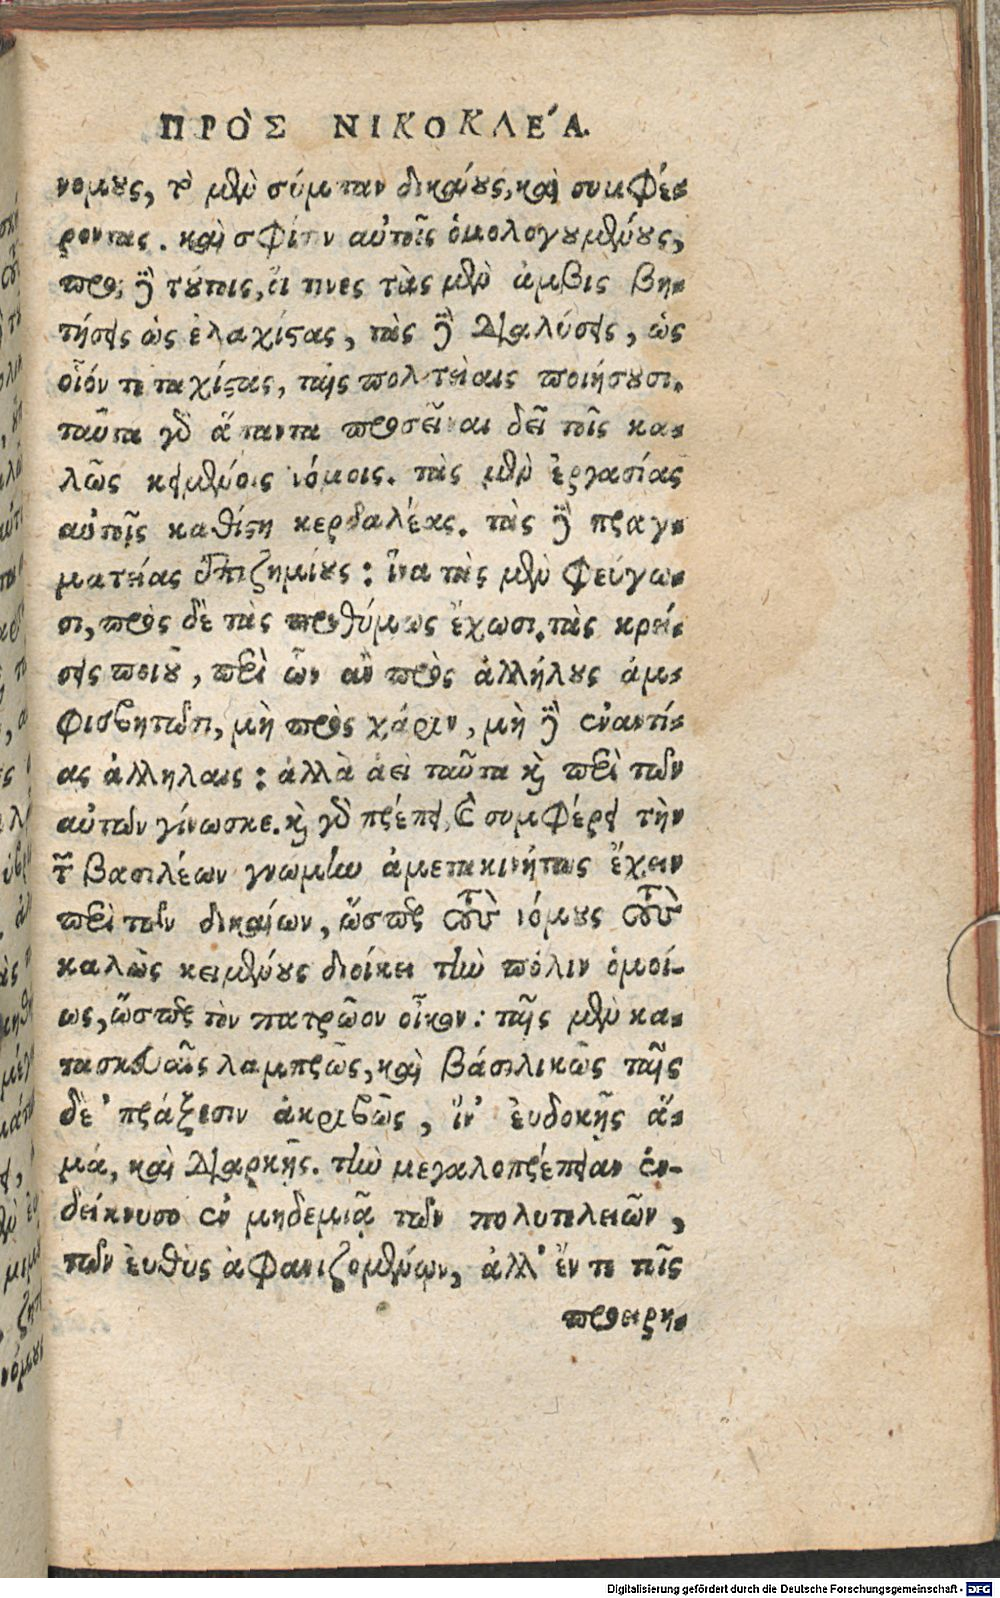 ΠΡΟ'Σ ΝΙΚΟΚΛΕ'Α.
νομους, τὸ μὲν σύμπαν δικαίους, καὶ συμφέ-
ροντας. καὶ σφίσιν αὐτοῖς ὁμολογουμένους,
πρὸς δὲ τούτοις, οἵ τινες τὰς μὲν ἀμβις βη-
τήσεις ὡς ἐλαχίστας, τὰς δὲ διαλύσεις, ὡς
οἷόν τε ταχίστας, ταῖς πολιτείαις ποιήσουσι.
ταῦτα γὰρ ἅπαντα προσεῖναι δεῖ τοῖς κα-
λῶς κειμένοις νόμοις. τὰς μὲν ἐργασίας
αὐτοῖς καθίστη κερδαλέας. τὰς δὲ πραγ-
ματείας ἐπιζημίους: ἵνα τὰς μὲν φεύγω-
σι, πρὸς δὲ τὰς προθύμως ἔχωσι. τὰς κρί-
σεις ποιοῦ, περὶ ὧν ἂν πρὸς ἀλλήλους ἀμ-
φισβητῶσι, μὴ πρὸς χάριν, μὴ δὲ ἐναντί-
ας ἀλλήλαις: ἀλλὰ ἀεὶ ταῦτα καὶ περὶ τῶν
αὐτῶν γίνωσκε. καὶ γὰρ πρέπει, καὶ συμφέρει τὴν
τῶν βασιλέων γνωμὴν ἀμετακινήτως ἔχειν
περὶ τῶν δικαίων, ὥσπερ τοὺς νόμους τοὺς
καλῶς κειμένους διοίκει τὴν πόλιν ὁμοί-
ως, ὥσπερ τὸν πατρῶον οἶκον: ταῖς μὲν κα-
τασκευαῖς λαμπρῶς, καὶ βασιλικῶς ταῖς
δὲ πράξεσιν ἀκριβῶς, ἵν' εὐδοκῇς ἅ-
μα, καὶ διαρκῇς. τὴν μεγαλοπρέπειαν ἐν-
δείκνυσο ἐν μηδεμιᾷ τῶν πολυτελειῶν,
τῶν εὐθὺς ἀφανιζομένων, ἀλλ' ἔν τε τοῖς
προειρη-
Digitalisierung gefördert durch die Deutsche Forschungsgemeinschaft - DFG